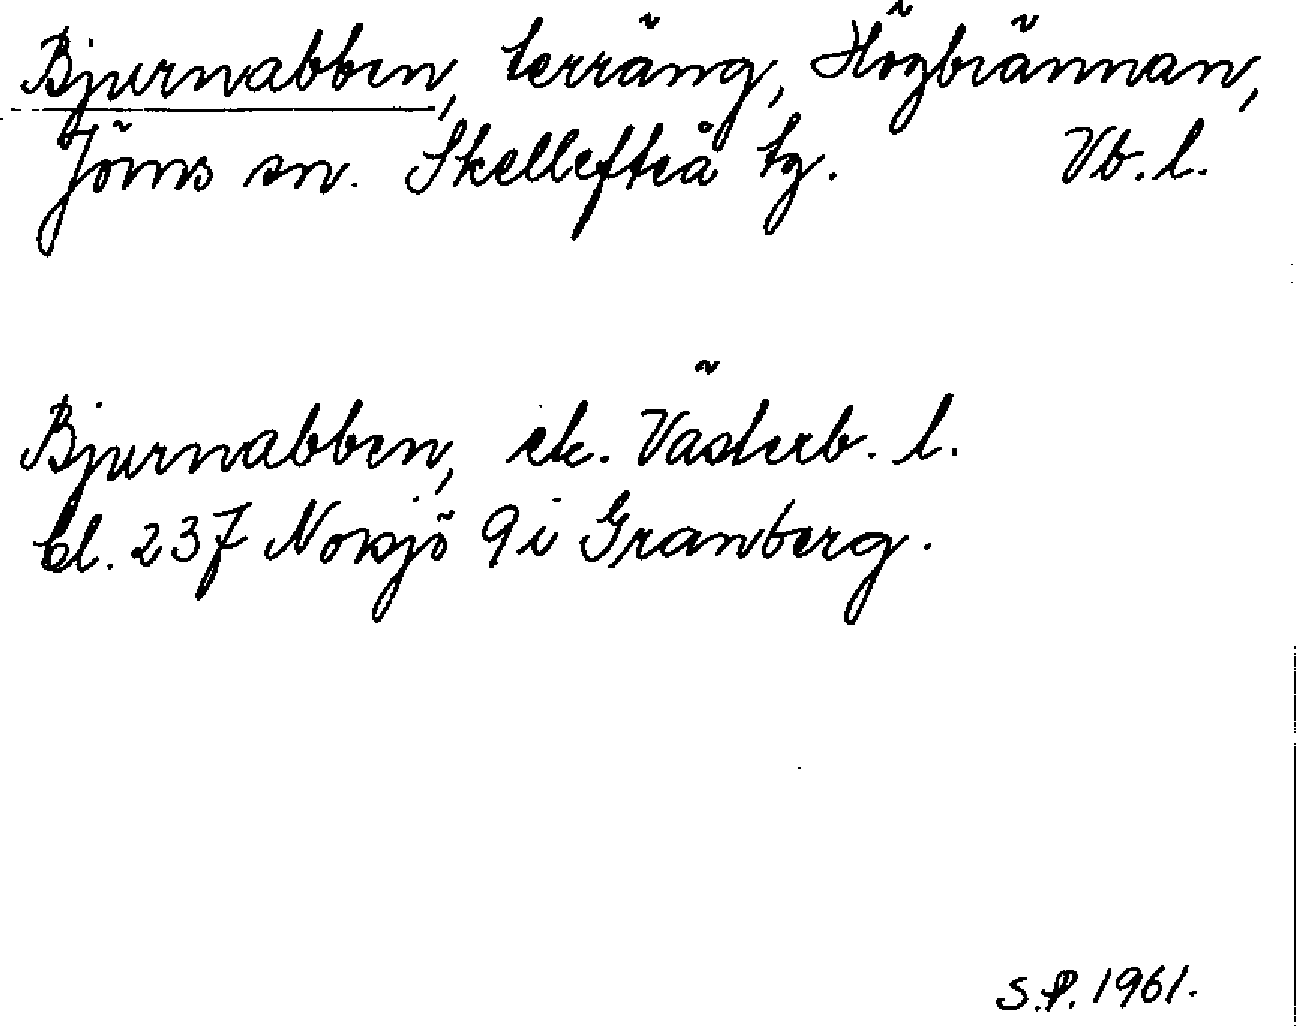 Bjurnabben, terräng, Högbrännan,
Jörns sn. Skellefteå tg. Vb. l.
Bjurnabben, ek. Västerb. l.
bl. 237 Norsjö 9 i Granberg.
S.P. 1961.